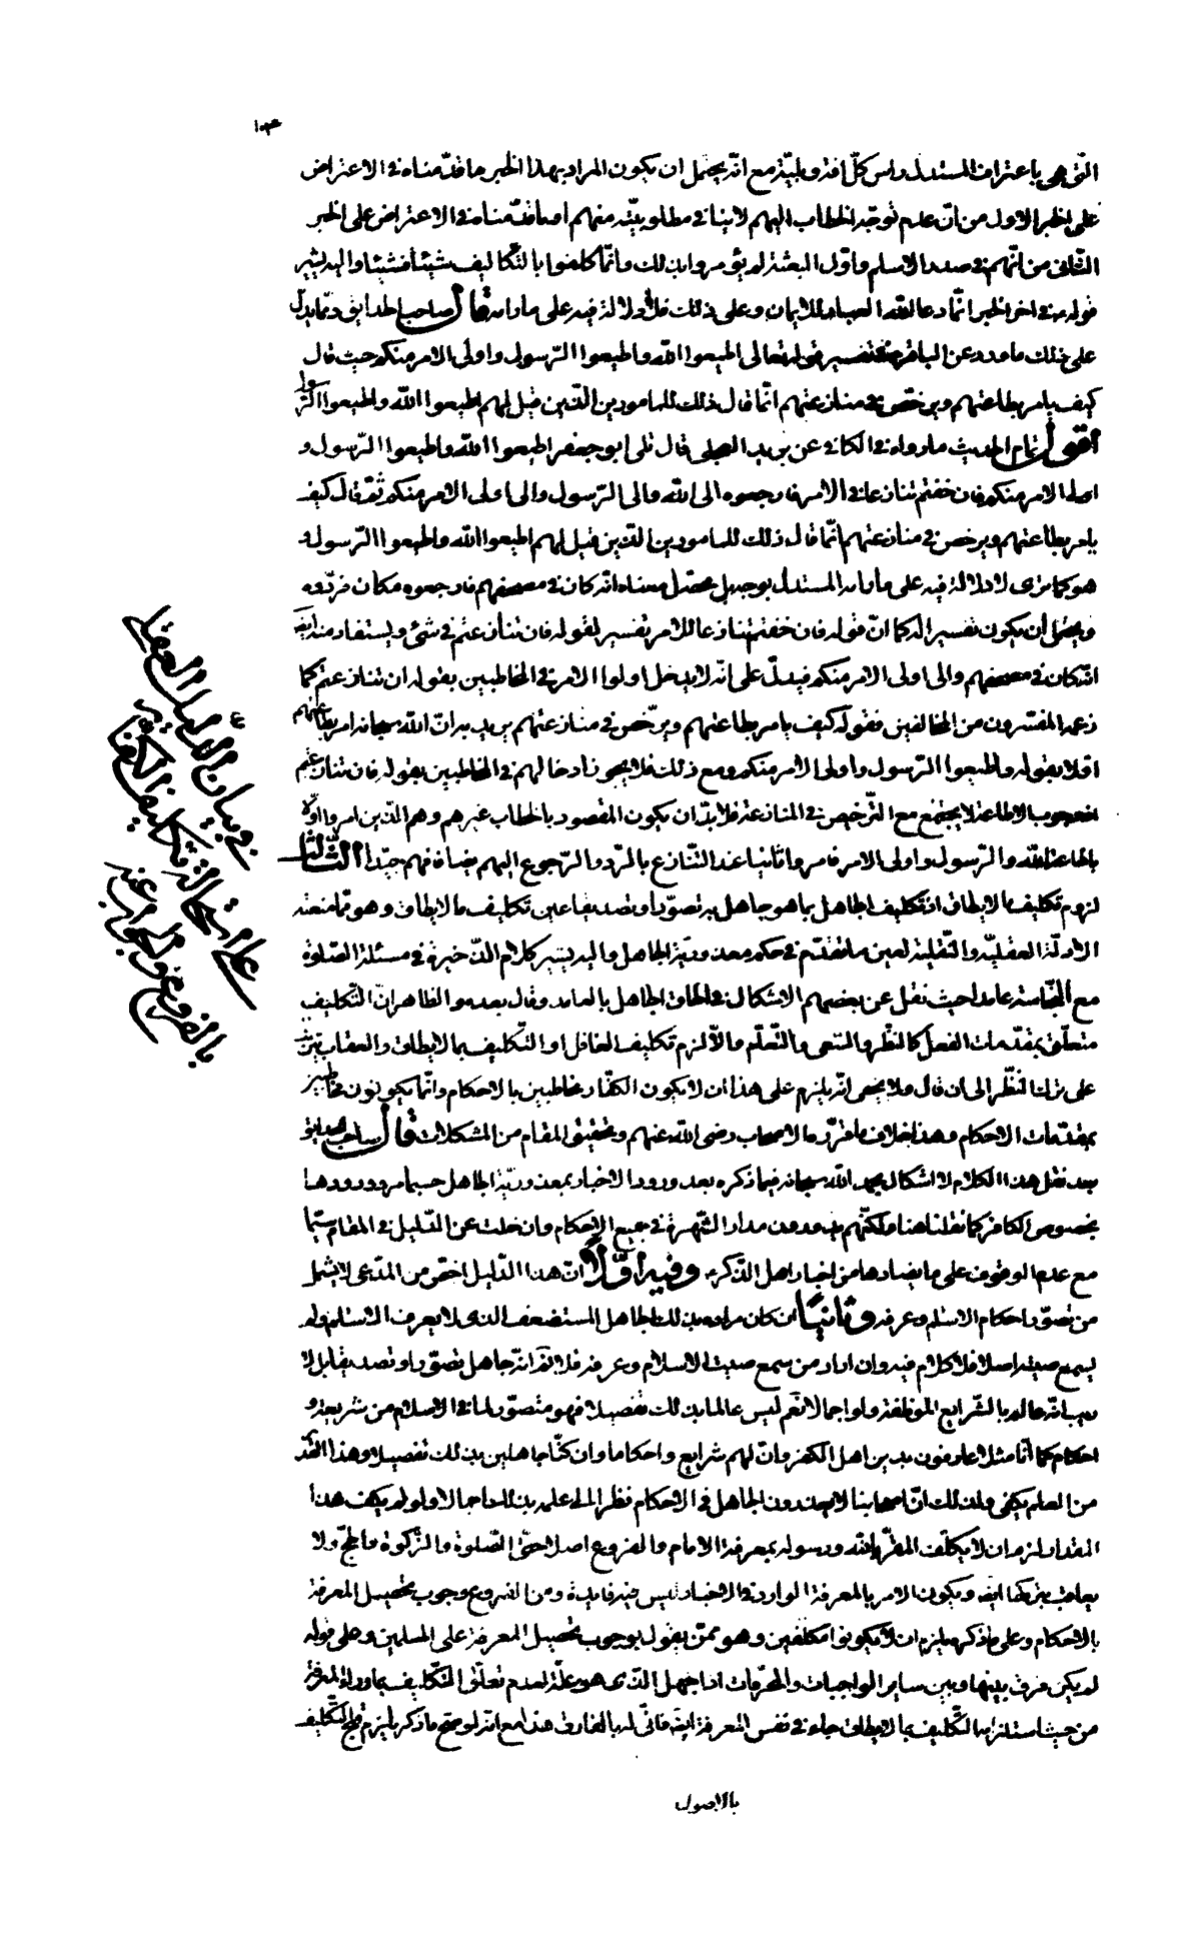 التي هي باعتراف المستدل راس كل افة وبلية مع انه يحتمل ان يكون المراد بهذا الخبر ما قدمناه في الاعتراض
على الخبر الاول من ان عدم توجه الخطاب اليهم لا ينافي مطلوبيته منهم او ما قدمناه في الاعتراض على الخبر
الثاني من انهم في صدر الاسلم واول البعثة لم يؤمروا بذلك وانما كلفوا بالتكاليف شيئا فشيئا واليه يشير
قوله في اخر الخبر انما دعا الله العباد للايمان وعلى ذلك فلا دلالة فيه على مارامه قال صاحب الحدايق ومما يدل
على ذلك ما ورد عن الباقر في تفسير قوله تعالى اطيعوا الله واطيعوا الرسول واولى الامر منكم حيث قال
كيف يامر بطاعتهم ويرخص في منازعتهم انما قال ذلك للمامورين الذين قيل لهم اطيعوا الله واطيعوا الرسول
اقول تمام الحديث ما رواه في الكافي عن بريد العجلى قال تلى ابو جعفر اطيعوا الله واطيعوا الرسول و
اولى الامر منكم فان خفتم تنازعا في الامر فارجعوه الى الله والى الرسول والى اولى الامر منكم ثم قال كيف
يامر بطاعتهم ويرخص في منازعتهم انما قال ذلك للمامورين الذين قيل لهم اطيعوا الله واطيعوا الرسول و
هو كما ترى لا دلالة فيه على مارامه المستدل بوجه بل محتمل معناه انه كان في مصحفهم فارجعوه مكان فردوه
ويحتمل ان يكون تفسيرا له كما ان قوله فان خفتم تنازعا للامر تفسير لقوله فان تنازعتم في شئ ويستفاد منه ايضا
انه كان في مصحفهم والى اولى الامر منكم فيدل على انه لا يدخل اولوا الامر في المخاطبين بقوله ان تنازعتم كما
زعمه المفسرون من المخالفين فقوله كيف يامر بطاعتهم ويرخص في منازعتهم يريد به ان الله سبحانه امر بطاعتهم
اولا بقوله واطيعوا الرسول واولى الامر منكم ومع ذلك فلا يجوز ادخالهم في المخاطبين بقوله فان تنازعتم
اذ وجوب الاطاعة لا يجتمع مع الترخيص في المنازعة فلا بد ان يكون المقصود بالخطاب غيرهم وهم الذين امروا اولا
باطاعة الله والرسول واولى الامر فامروا ثانيا عند التنازع بالرد والرجوع اليهم فافهم جيدا الثالث
لزوم تكليف ما لا يطاق اذ تكليف الجاهل بما هو جاهل به تصورا وتصديقا عين تكليف ما لا يطاق وهو مما منعته
الادلة العقلية والنقلية لعين ما تقدم في حكم معذورية الجاهل واليه يشير كلام الذخيرة في مسئلة الصلوة
مع النجاسة عامدا حيث نقل عن بعضهم الاشكال في الحاق الجاهل بالعامد وقال بعده والظاهر ان التكليف
متعلق بمقدمات الفعل كالنظر والسعى والتعلم والا لزم تكليف الغافل او التكليف بما لا يطاق والعقاب يترتب
على ترك النظر الى ان قال ولا يخفى انه يلزم على هذا ان لا يكون الكفار مخاطبين بالاحكام وانما يكونون مخاطبين
بمقدمات الاحكام وهذا خلاف ما قرره الاصحاب رضى الله عنهم وتحقيق المقام من المشكلات قال صاحب الحدايق
بعد نقل هذا الكلام لا اشكال بحمد الله سبحانه فيما ذكره بعد ورود الاخبار بمعذورية الجاهل حسبما مر وورودها
بخصوص الكافر كما نقلنا هنا ولكنهم يدورون مدار الشهرة في جميع الاحكام وان خلت عن الدليل في المقام سيما
مع عدم الوقوف على ما يضادها من اخبار اهل الذكر وفيه اولا ان هذا الدليل اخص من المدعى لا يشمل
من تصور احكام الاسلم وعرفه وثانيا ان كان مراده بذلك الجاهل المستضعف الذى لا يعرف الاسلم ولم
يسمع صيته اصلا فلا كلام فيه وان اراد من سمع صيت الاسلام وعرفه فلا نقد انه جاهل تصورا وتصديقا بل لا
ريب انه عالم بالشرايع الموظفة ولو اجمالا نعم ليس عالما بذلك تفصيلا فهو متصور لما في الاسلام من شريعة و
احكام كما انا مثلا عارفون بدين اهل الكفر وان لهم شرايع واحكاما وان كنا جاهلين بذلك تفصيلا وهذا القدر
من العلم يكفى ولذلك ان اصحابنا لا يعذرون الجاهل في الاحكام نظرا الى علمه بذلك اجمالا ولو لم يكف هذا
المقدار لزم ان لا يكلف المقر بالله ورسوله بمعرفة الامام والفروع اصلا حتى الصلوة والزكوة والحج ولا
يعاقب بتركها ايضا ويكون الامر بالمعرفة الواردة في الاخبار ليس فيه فايدة ومن الفروع وجوب تحصيل المعرفة
بالاحكام وعلى ما ذكره يلزم ان لا يكونوا مكلفين وهو ممن يقول بوجوب تحصيل المعرفة على المسلمين وعلى قوله
لم يكن فرق بينها وبين ساير الواجبات والمحرمات اذا جهل الذى هو علة لعدم تعلق التكليف بما وراء المعرفة
من حيث استلزامه التكليف بما لا يطاق جار في نفس المعرفة ايضا فانى له بالفارق هذا مع انه لو صح ما ذكر يلزم قبح التكليف
بالاصول
في بيان الدليل العقلى
على استحالة تكليف الكافر
بالفروع والجواب عنه